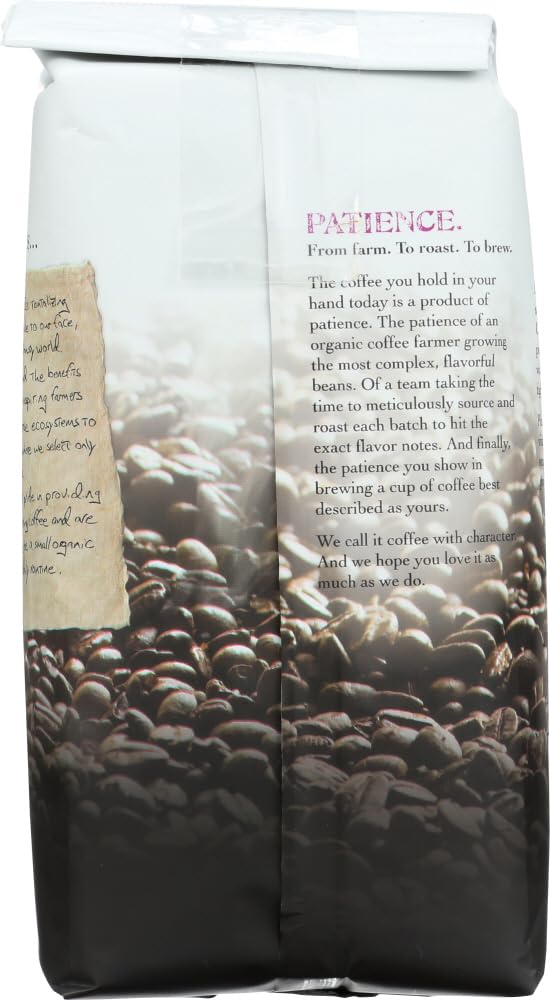 PATIENCE.
From farm. To roast. To brew.
The coffee you hold in your
hand today is a product of
patience. The patience of an
organic coffee farmer growing
the most complex, flavorful
beans. Of a team taking the
time to meticulously source and
roast each batch to hit the
exact flavor notes. And finally,
the patience you show in
brewing a cup of coffee best
described as yours.
We call it coffee with character.
And we hope you love it as
much as we do.
tantalizing
to our face,
world
the benefits
farmers
ecosystems to
we select only
in providing
coffee and are
a small organic
routine.